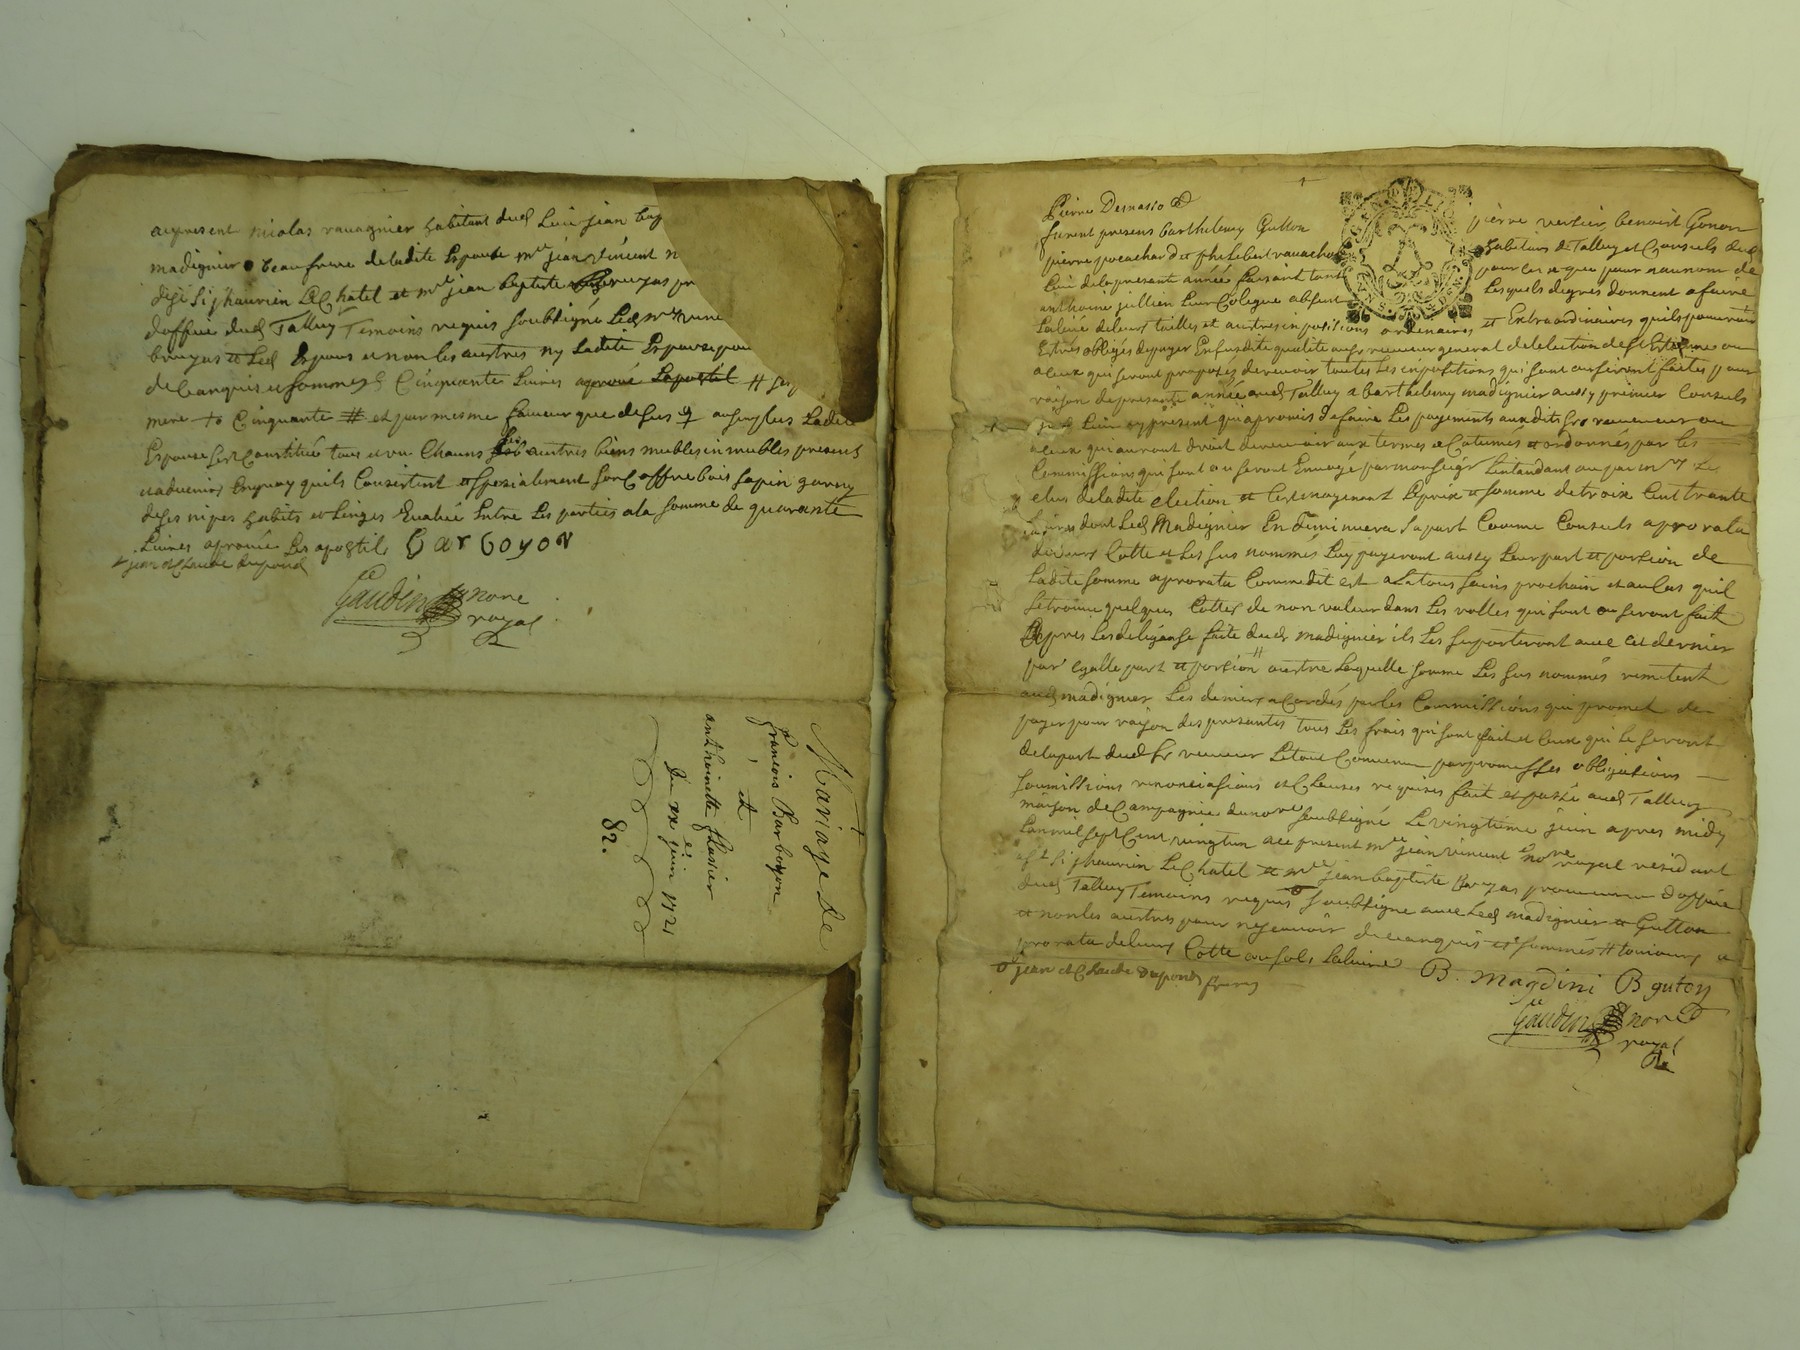 aupresent nicolas ravagnier habitant dud Lieu jean bap
madignier beaufrere de ladite Espouse mre jean vincent n
de st siphaurien Le Chatel et mre jean baptiste bruyas pr
doffice dud Talluy Temoins requis soubsigné Led mre vinc
bruyas et Led Espoux et non les austres ny Ladite Espouse pour
de Cenquis et sommes Cinquante Livres
mere Cinquante # et par mesme faveur que desus au surplus Ladite
Espouse sest Constitué tous et un Chacuns ses austres biens meubles inmeubles presens
et advenirs Enquoy quils Consistent et spesialement son Coffre bois sapin garny
de ses nipes habits et Linges Evalué Entre Les parties a la somme de quarante
Livres aprouvé Les apostils barboyon
jean et Claude dupond
Gaudin nore
royal
Mariage de
François Barboyon
et
anthoinette
Du xxe juin 1721
82.
Pierre
furent presens barthelemy Gutton pierre versier benoist Gonon
pierre pocachard et philebert ravachol habitans de Talluy et Consuls dud
Lieu de la presante année faisant tant pour Eux que pour au nom de
anthoine jullien Leur Colegue absent Lesquels degres donnent a faire
La levé de leurs tailles et austres inpositions ordenaires et Extraordinaires quils pourront
Estres obligés de payer En susdite qualité au sr receveur general de lelection de st Estienne ou
a Ceux qui seront proposez de recevoir toutes Les inpositions qui sont ou seront faites pour
raison de presante année aud Talluy a barthelemy madignier aussy premier Consuls
dud Lieu cy present qui a promis de faire Les payements aux dits sr receveur ou
a Ceux qui auront droit de recevoir aux termes et Cotumes et ordonnés par les
Commissions qui sont ou seront Envoyé par monseigr Lintandant ou par mrs Les
elus de ladite election et Cest moyenant Le prix et somme de troix Cent trante
Livres dont Led Madignier En diminuera sa part Comme Consuls aprorata
de leurs Cotte et Les sus nommés Luy payeront aussy Leur part et portion de
Ladite somme aprorata Comme dit est a La tous sains prochain et au Cas quil
se trouve quelques Cottes de non valeur dans Les rolles qui sont ou seront fait
apres Les deligense faite dud madignier ils Les suporteront avec Cet dernier
par Egalle part et portion # outre Laquelle somme Les sus nommés remetent
aud madignier Les deniers acordés par les Commissions qui promet de
payer pour raison des presantes tous Les frais qui sont fait et Ceux qui Le seront
de la part dud sr receveur Le tout Convenu par promesses obligations
soumissions renonciasions et Clauses requises fait et passé aud Talluy
maison de Campagne du nore soubsigné Le vingtieme juin apres midy
Lan mil sept Cent vingt un aux present mre jean vincent nore royal residant
a st siphaurien Le Chatel et mre jean baptiste bruyas procureur doffice
dud Talluy Temoins requis soubsigne avec Led madignier et Gutton
et non les austres pour ne scavoir de Cenquis et sommés # toujours a
prorata de leurs Cotte au sols La livre B. Magdini B guton
jean et Claude dupond freres
Gaudin nore
royal